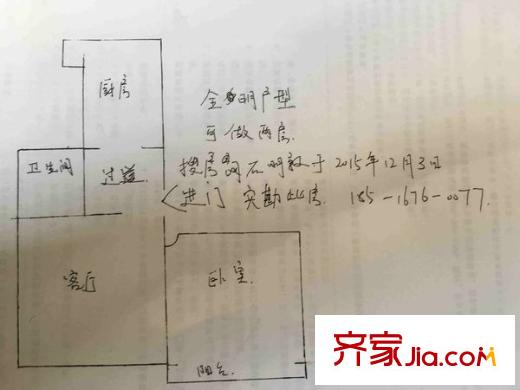 厨房
全明户型
可做两房.
卫生间
过道
搜房网石明敏于2015年12月3日
进门 实勘此房. 185-1676-0077.
客厅
卧室.
阳台.
齐家Jia.com